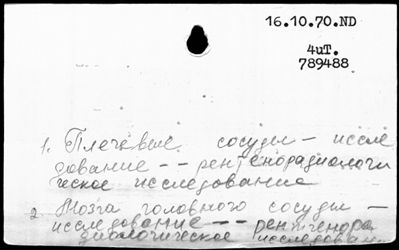 16.10.70.ND
4uT.
789488
1. Плечевые сосуды - иссле
дование -- рентенорадиологи
ческое исследование
2 Мозга головного сосуды -
исследование -- рентгенора
диологическое исследован